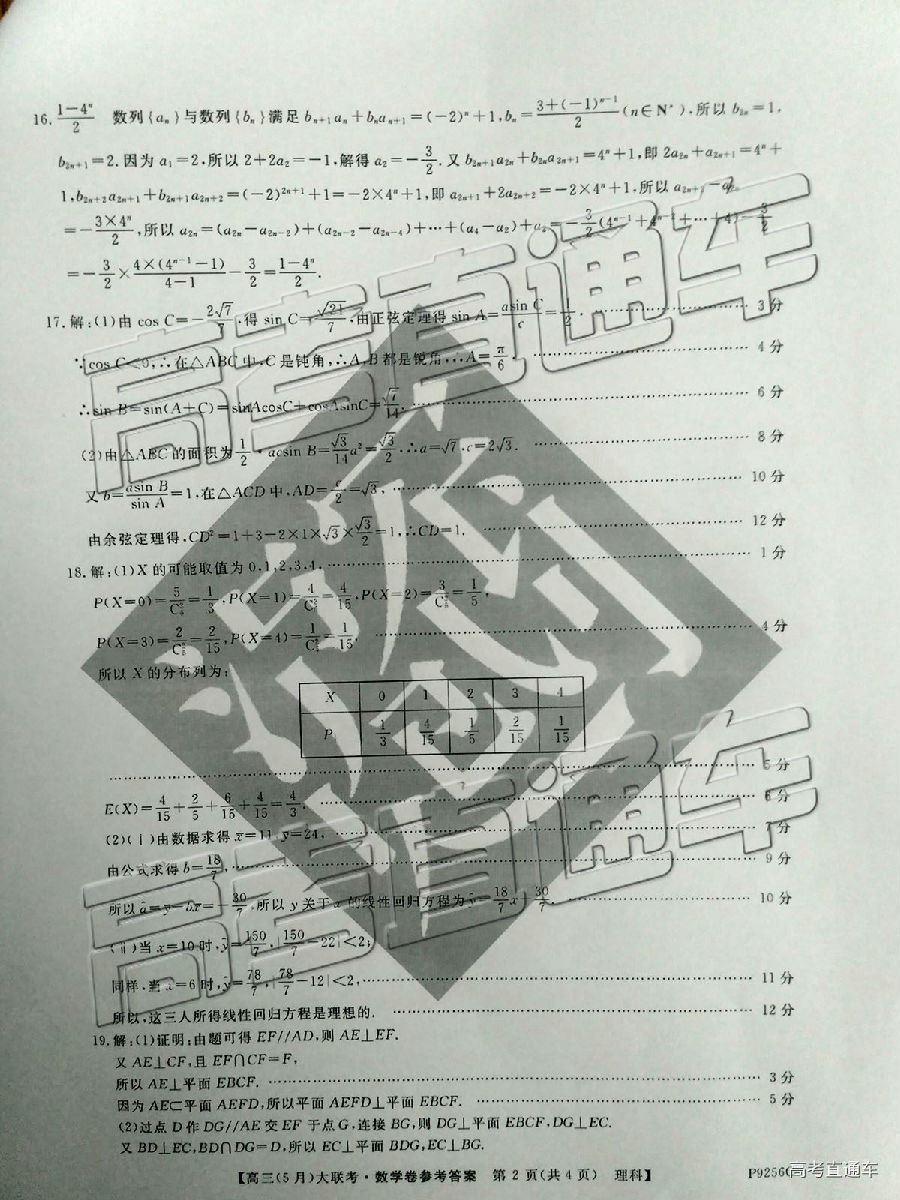 16. (1-4ⁿ)/2 数列{aₙ}与数列{bₙ}满足 bₙ₊₁aₙ+bₙaₙ₊₁=(-2)ⁿ+1,bₙ=(3+(-1)ⁿ⁻¹)/2 (n∈N*),所以 b₂ₙ=1,
b₂ₙ₊₁=2.因为 a₁=2,所以 2+2a₂=-1,解得 a₂=-3/2.又 b₂ₙ₊₁a₂ₙ+b₂ₙa₂ₙ₊₁=4ⁿ+1,即 2a₂ₙ+a₂ₙ₊₁=4ⁿ+
1,b₂ₙ₊₂a₂ₙ₊₁+b₂ₙ₊₁a₂ₙ₊₂=(-2)²ⁿ⁺¹+1=-2×4ⁿ+1,即 a₂ₙ₊₁+2a₂ₙ₊₂=-2×4ⁿ+1,所以 a₂ₙ₊₂-a₂ₙ
=-(3×4ⁿ)/2,所以 a₂ₙ=(a₂ₙ-a₂ₙ₋₂)+(a₂ₙ₋₂-a₂ₙ₋₄)+…+(a₄-a₂)+a₂=-3/2(4ⁿ⁻¹+4ⁿ⁻²+…+4)-3/2
=-3/2×(4×(4ⁿ⁻¹-1))/(4-1)-3/2=(1-4ⁿ)/2.
17.解:(1)由 cos C=-2√7/7,得 sin C=√21/7,由正弦定理得 sin A=asin C/c=1/2. 3分
∵cos C<0,∴在△ABC中,C是钝角,∴A,B都是锐角,∴A=π/6. 4分
∴sin B=sin(A+C)=sinAcosC+cosAsinC=√7/14. 6分
(2)由△ABC的面积为 1/2·acsin B=√3/14a²=√3/2,∴a=√7,c=2√3. 8分
又 b=asin B/sin A=1,在△ACD中,AD=c/2=√3, 10分
由余弦定理得,CD²=1+3-2×1×√3×√3/2=1,∴CD=1. 12分
18.解:(1)X的可能取值为0,1,2,3,4. 1分
P(X=0)=5/C₆²=1/3,P(X=1)=4/C₆²=4/15,P(X=2)=3/C₆²=1/5,
P(X=3)=2/C₆²=2/15,P(X=4)=1/C₆²=1/15. 4分
所以X的分布列为:
X 0 1 2 3 4
P 1/3 4/15 1/5 2/15 1/15
5分
E(X)=4/15+2/5+6/15+4/15=4/3. 6分
(2)(ⅰ)由数据求得 x̄=11,ȳ=24, 7分
由公式求得 b̂=18/7, 9分
所以 â=ȳ-b̂x̄=-30/7,所以 y 关于 x 的线性回归方程为 ŷ=18/7x-30/7. 10分
(ⅱ)当 x=10 时,ŷ=150/7,|150/7-22|<2;
同样,当 x=6 时,ŷ=78/7,|78/7-12|<2, 11分
所以,这三人所得线性回归方程是理想的. 12分
19.解:(1)证明:由题可得 EF//AD,则 AE⊥EF.
又 AE⊥CF,且 EF∩CF=F,
所以 AE⊥平面 EBCF. 3分
因为 AE⊂平面 AEFD,所以平面 AEFD⊥平面 EBCF. 5分
(2)过点 D 作 DG//AE 交 EF 于点 G,连接 BG,则 DG⊥平面 EBCF,DG⊥EC.
又 BD⊥EC,BD∩DG=D,所以 EC⊥平面 BDG,EC⊥BG.
【高三(5月)大联考·数学卷参考答案 第2页(共4页) 理科】 P9256
高考直通车
高考直通车
高考直通车